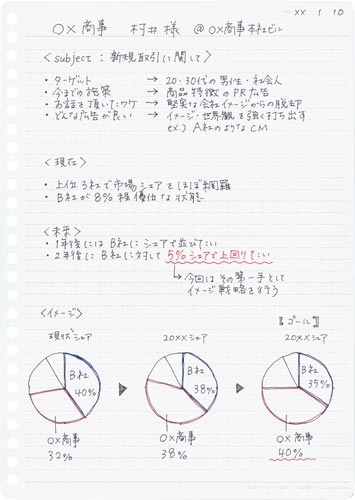 XX 1 10
OX商事 村井様 @OX商事本社ビル
<subject:新規取引に関して>
・ターゲット → 20・30代の男性・社会人
・今までの施策 → 商品特徴のPR広告
・お話を頂いたワケ → 堅実な会社イメージからの脱却
・どんな広告が良い → イメージ・世界観を強く打ち出す
ex.) A社のようなCM
<現在>
・上位3社で市場シェアをほぼ網羅
・B社が8%程優位な状態
<未来>
・1年後にはB社にシェアで並びたい
・2年後にB社に対して5%シェアで上回りたい
→今回はその第一手として
イメージ戦略を行う
<イメージ>
【ゴール】
現状シェア 20XXシェア 20XXシェア
B社 B社 B社
40% 38% 35%
OX商事 OX商事 OX商事
32% 38% 40%